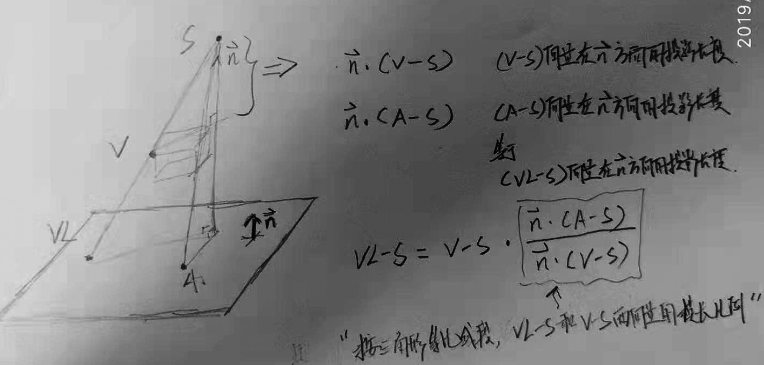 2019/
S
n⃗
⇒
n⃗·(V-S) (V-S)向量在n⃗方向的投影长度.
n⃗·(A-S) (A-S)向量在n⃗方向的投影长度
等于
(VL-S)向量在n⃗方向的投影长度.
V
VL
n⃗
A.
VL-S = V-S · n⃗·(A-S) / n⃗·(V-S)
↑
"按三角形等比线段, VL-S和V-S两向量的模长比例"